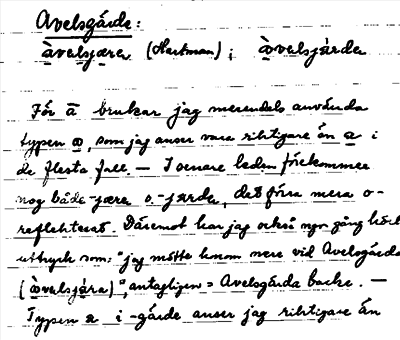 Avelsgärde:
àvelsjæra (Hartman); àvelsjärda
För ā brukar jag merendels använda
typen ꝏ, som jag anser vara riktigare än a i
de flesta fall. — I senare leden förekommer
nog både -jæra o. -jærda, det förra mera o-
reflekterat. Däremot har jag också ngn gång hört
uttryck som: "jag mötte honom nere vid Avelsgärda
(àvelsjæra)", antagligen = Avelsgärda backe. —
Typen æ i -gärde anser jag riktigare än